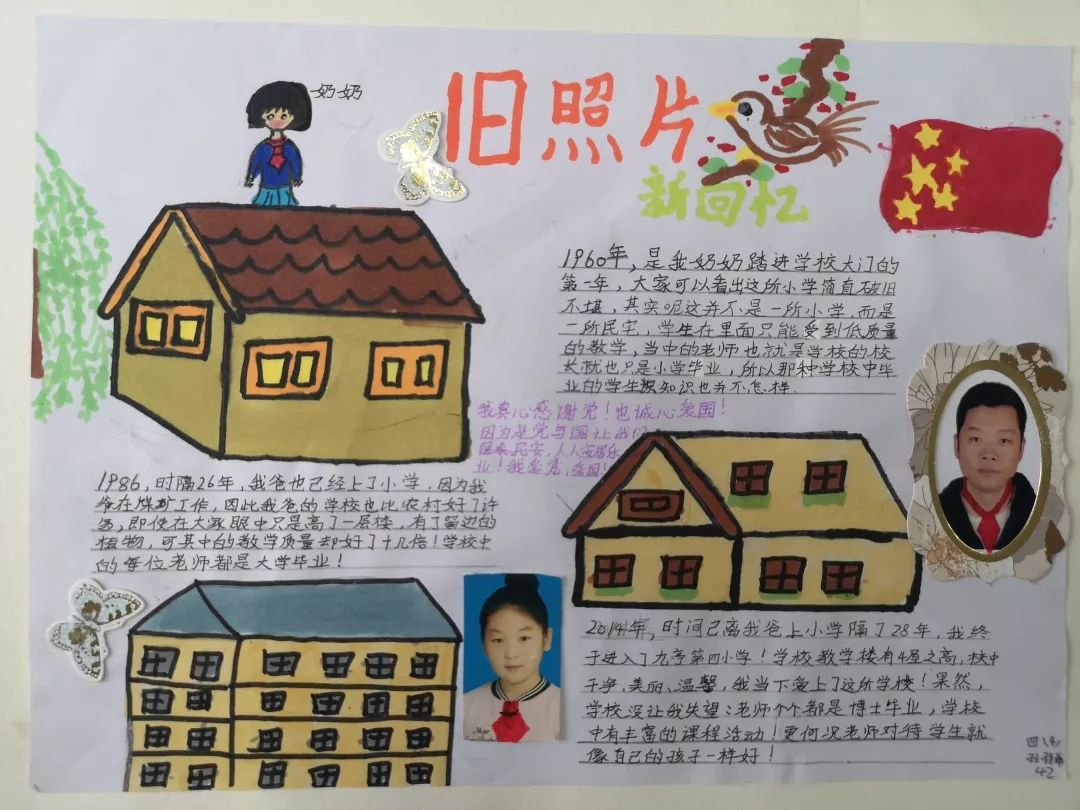 奶奶
旧照片
新回忆
1960年,是我奶奶踏进学校大门的
第一年,大家可以看出这所小学简直破旧
不堪,其实呢这并不是一所小学,而是
一所民宅,学生在里面只能受到低质量
的教学,当中的老师也就是学校的校
长就也只是小学毕业,所以那种学校中毕
业的学生 知识也并不怎样.
我真心感谢党!也诚心爱国!
因为是党与国让我们
国泰民安,人人安居乐
业!我爱党,爱国!
1986,时隔26年,我爸也已经上了小学.因为我
爷在煤矿工作,因此我爸的学校也比农村好了许
多,即使在大家眼中只是高了一层楼,有了窗边的
植物,可其中的教学质量却好了十几倍!学校中
的每位老师都是大学毕业!
2014年,时间已离我爸上小学隔了28年,我终
于进入了九亭第四小学!学校教学楼有4层之高,校中
干净、美丽、温馨,我当下爱上了这所学校!果然,
学校没让我失望:老师个个都是博士毕业,学校
中有丰富的课程活动!更何况老师对待学生就
像自己的孩子一样好!
四
42